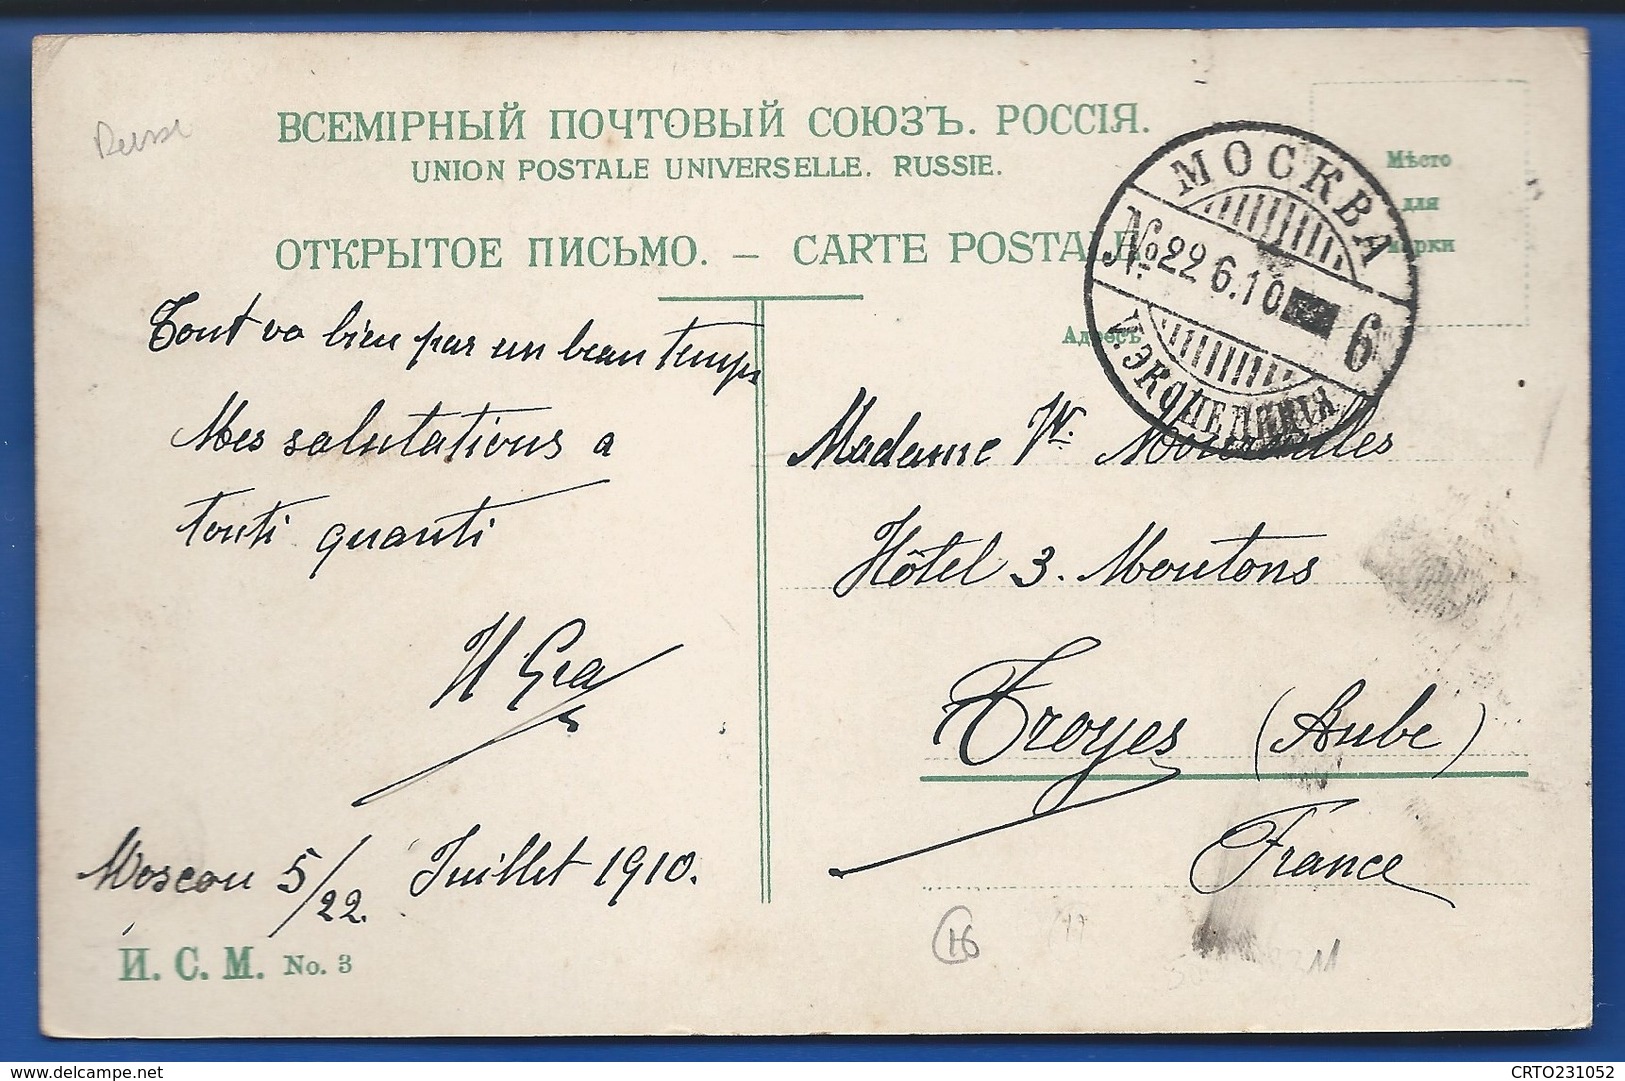 ВСЕМІРНЫЙ ПОЧТОВЫЙ СОЮЗЪ. РОССІЯ.
UNION POSTALE UNIVERSELLE. RUSSIE.
ОТКРЫТОЕ ПИСЬМО. — CARTE POSTALE.
Мѣсто
для
марки
МОСКВА
№ 22 6.10 6
V. ЭКСПЕДИЦІЯ
Адресъ
Tout va bien par un beau temps
Mes salutations a
touti quanti
H Gra
Moscou 5/22 Juillet 1910.
И. С. М. No. 3
Madame Vve
Hôtel 3. Moutons
Troyes (Aube)
France
16
Delcampe.net
CRTO231052